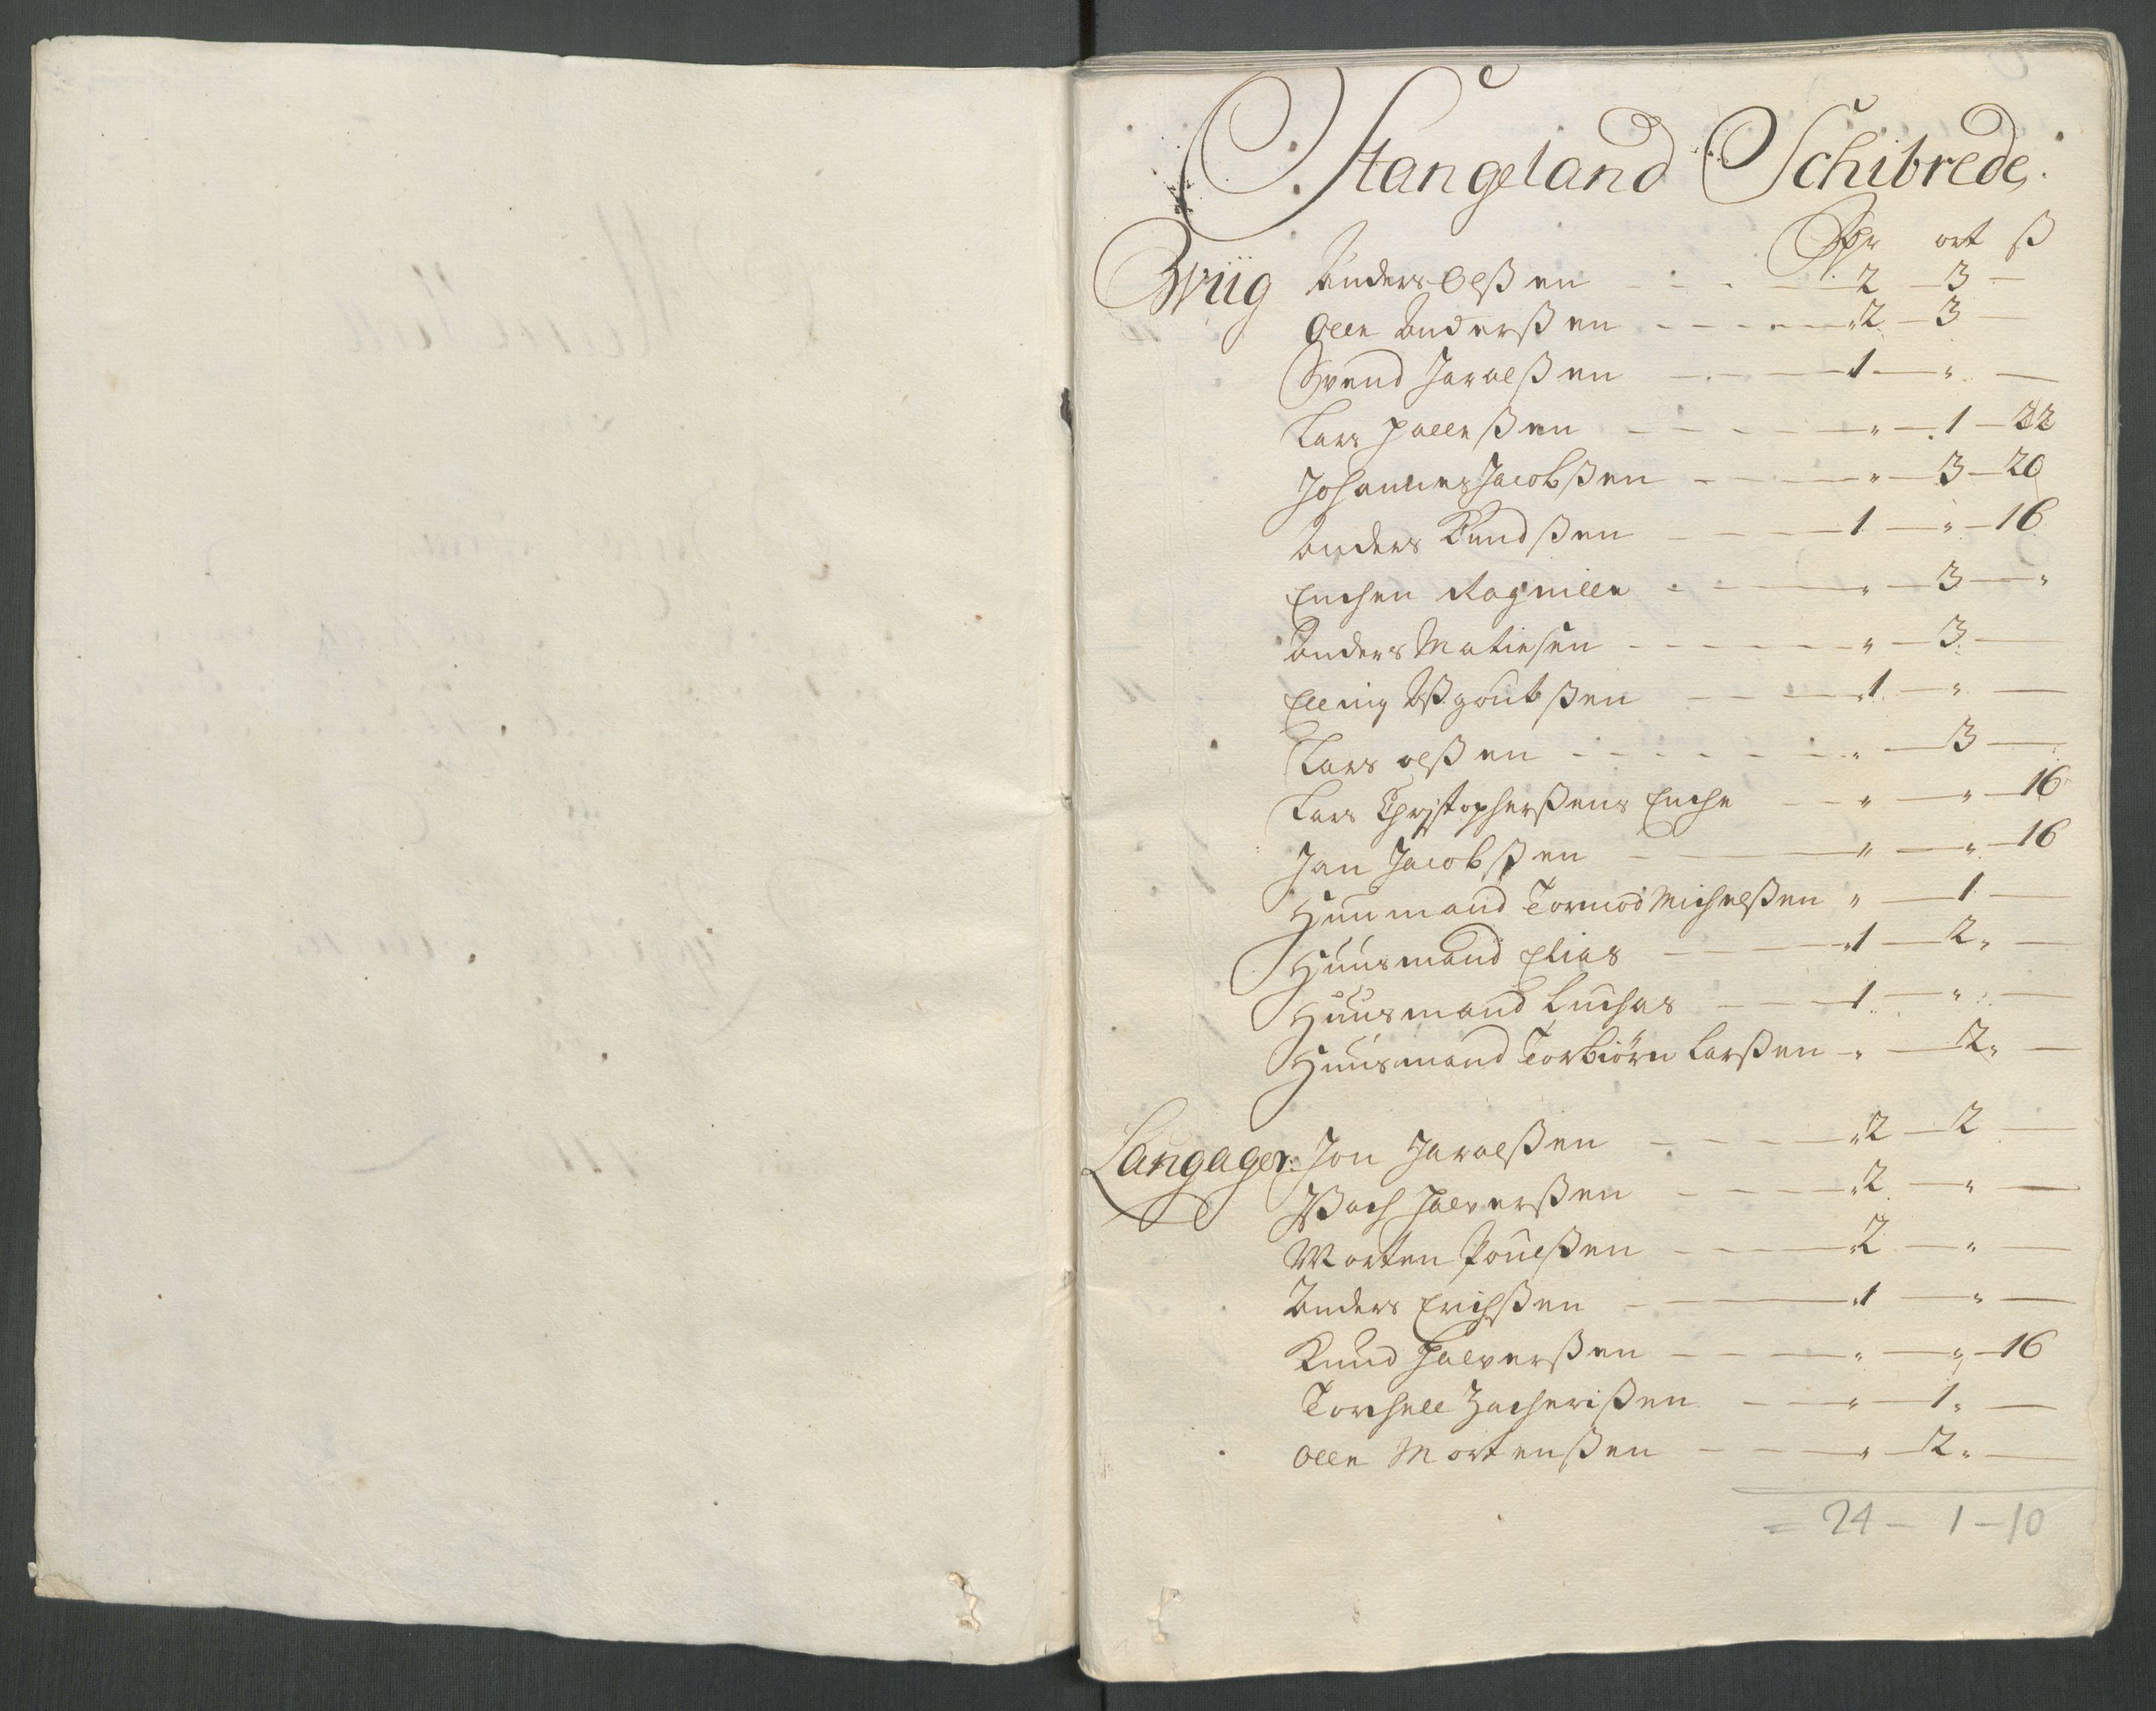 Stangeland Schibrede
Rdr ort ß
Wiig Anders Olßen - - - 2 - 3 -
Olle Anderßen - - - 2 - 3 -
Svend Jaralßen - - - 1 - " -
Lars Palleßen - - - " - 1 - 22
Johannes Jacobßen - - - " - 3 - 20
Anders Knudßen - - - 1 - " - 16
Enchen Ragnille - - - " - 3 - "
Anders Matiesen - - - " - 3 -
Elling Aßgoutßen - - - 1 - " -
Lars olßen - - - " - 3 -
Lars Christopherßens Enche - - " - " - 16
Jan Jacobßen - - " - " - 16
Huusmand Tormod Michelßen " - 1 -
Huusmand Elias - - 1 - 2 " -
Huusmand Luchas - - 1 - " -
Huusmand Torbiørn Larßen - " - 2 " -
Langager: Jon Jaralßen - - - 2 - 2 -
Isach Halverßen - - - 2 - " -
Morten Poulßen - - - 2 - " -
Anders Erichßen - - 1 - " -
Knud Halverßen - - - " - " - 16
Torchell Zacherißen - - " - 1 " -
Olle Mortenßen - - " - 2 " -
= 24 - 1 - 10